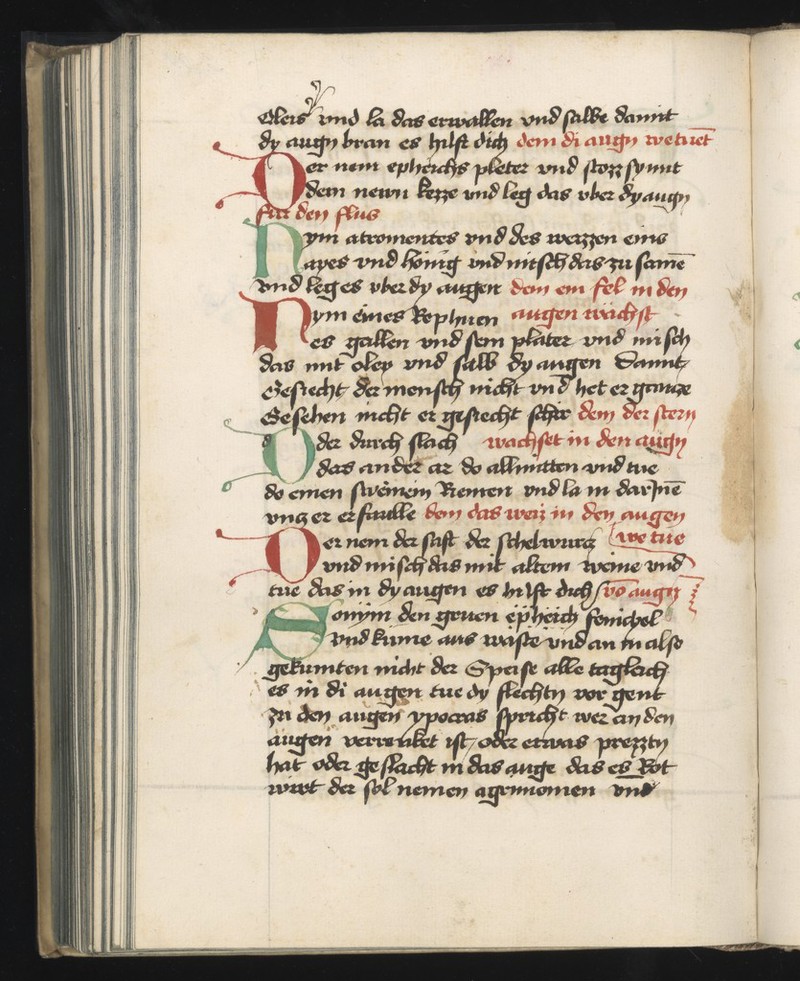 Oleis vnd la das erwallen vnd salbe damit
dy augn bran es hilft dich dem di augn we tuet
Der nem epheichs pleter vnd stozz sy mit
dem newn kezze vnd leg das vber dy augn
fur den flus
Nym atromentes vnd des weizzen eins
ayes vnd honig vnd misch das zu samē
vnd leg es vber dy augen dem ein fel in den
Nym eines Rephuen augen wachst
es gallen vnd sein plater vnd misch
das mit oley vnd salb dy augen Damit
Gesiecht der mensch nicht vnd het er gancze
Gesehen nicht er gesiecht schir dem der stern
Oder durch slach wachset in den augn
das ander ar do allmitten vnd tue
do einen sweinein Riemen vnd la in darinē
vncz er erfaulle dem das weis in den augen
Der nem der saft der schelwurcz we tue
vnd misch das mit altem weine vnd
tue das in dy augen es hilft dich vō augn
So nym den gruen epheich fenichel
vnd kume aus waste vnd an in also
gekumten nicht der Speise alle tagleich
es in di augen tue dy flechtn vor gent
zu den augen ypocras spricht wer an den
augen verrenket ist oder etwas prezztn
hat oder geslacht in das auge das es Rot
wirt der sol nemen agrimonien vnd